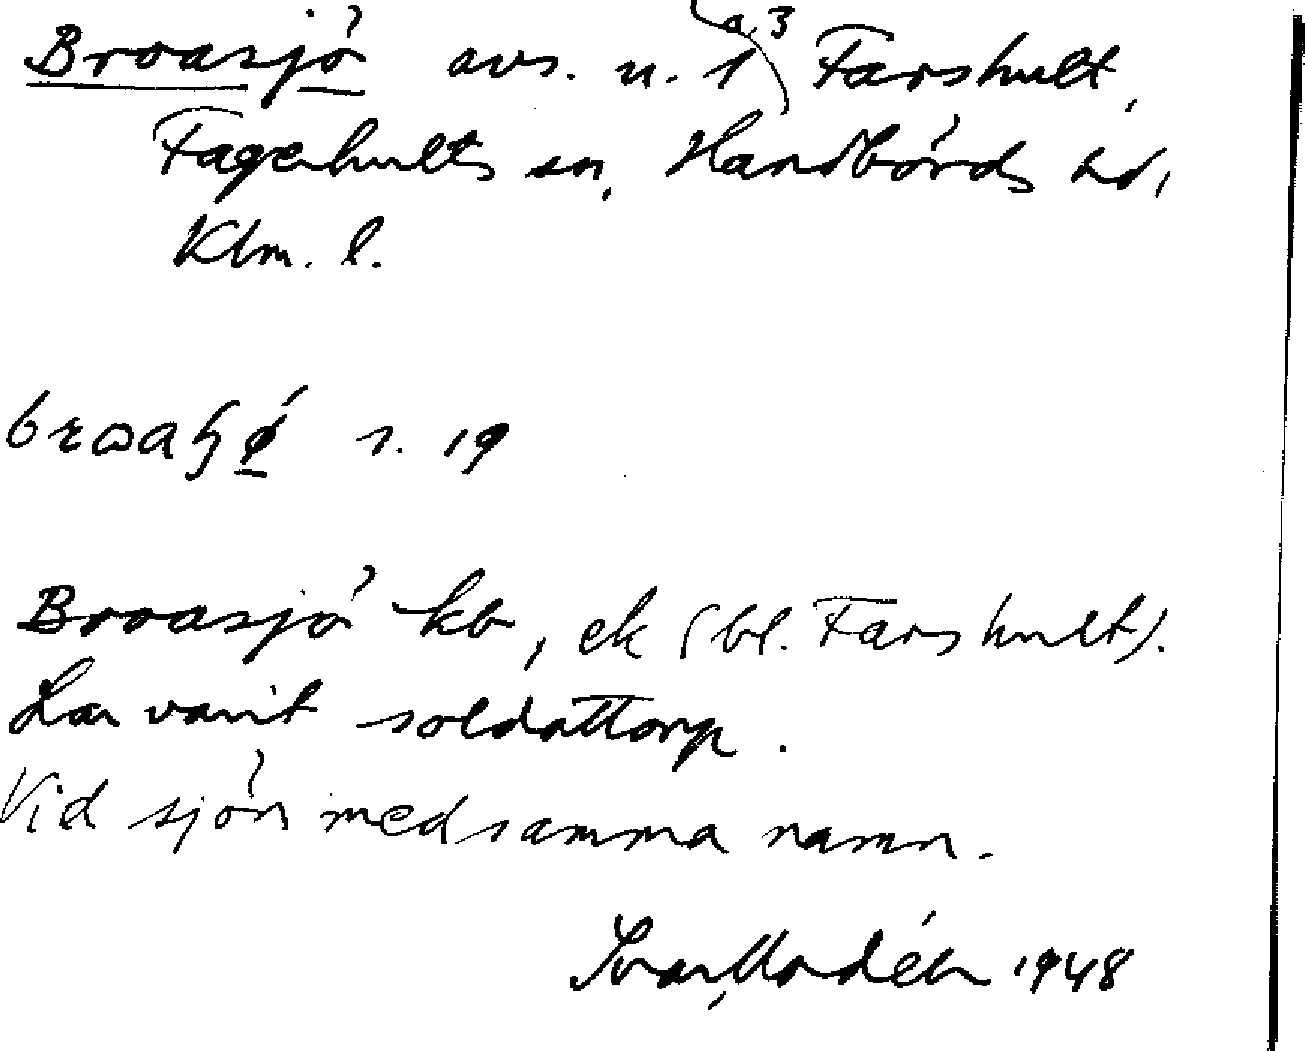 Broasjö avs. u. 1 a, 3 Farshult,
Fagerhults sn, Handbörds hd,
Klm. l.
s. 19
Broasjö kb, ek (bl. Farshult).
Har varit soldattorp.
Vid sjön med samma namn.
Ivar Modéer 1948